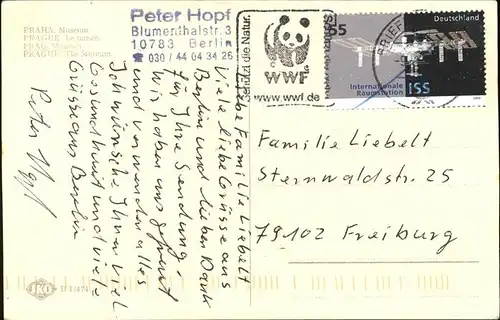 PRAHA. Museum
PRAGUE. Le musée.
PRAG. Museum.
PRAGUE. The Museum.
Peter Hopf
Blumenthalstr. 3
10783 Berlin
☎ 030 / 44 04 34 26
Schützt die Natur.
WWF
www.wwf.de
BRIEF
55
Deutschland
Internationale
Raumstation
ISS
Liebe Familie Liebelt
Viele liebe Grüsse aus
Berlin und lieben Dank
für Ihre Sendung.
Wir haben uns gefreut
und verwenden alles
Ich wünsche Ihnen viel
Gesundheit und viele
Grüsse aus Berlin
Peter Hopf
Familie Liebelt
Sternwaldstr. 25
79102 Freiburg